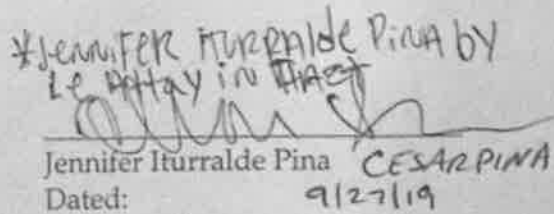 *Jennifer Iturralde Pina by
Attny in Fact
Jennifer Iturralde Pina CESAR PINA
Dated: 9/27/19